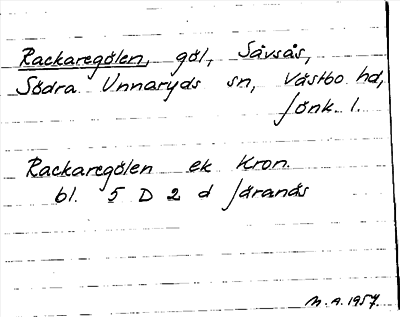 Rackaregölen, göl, Sävsås,
Södra Unnaryds sn, Västbo hd,
Jönk. l.
Rackaregölen ek Kron.
bl. 5 D 2 d Järanäs
M.A. 1957